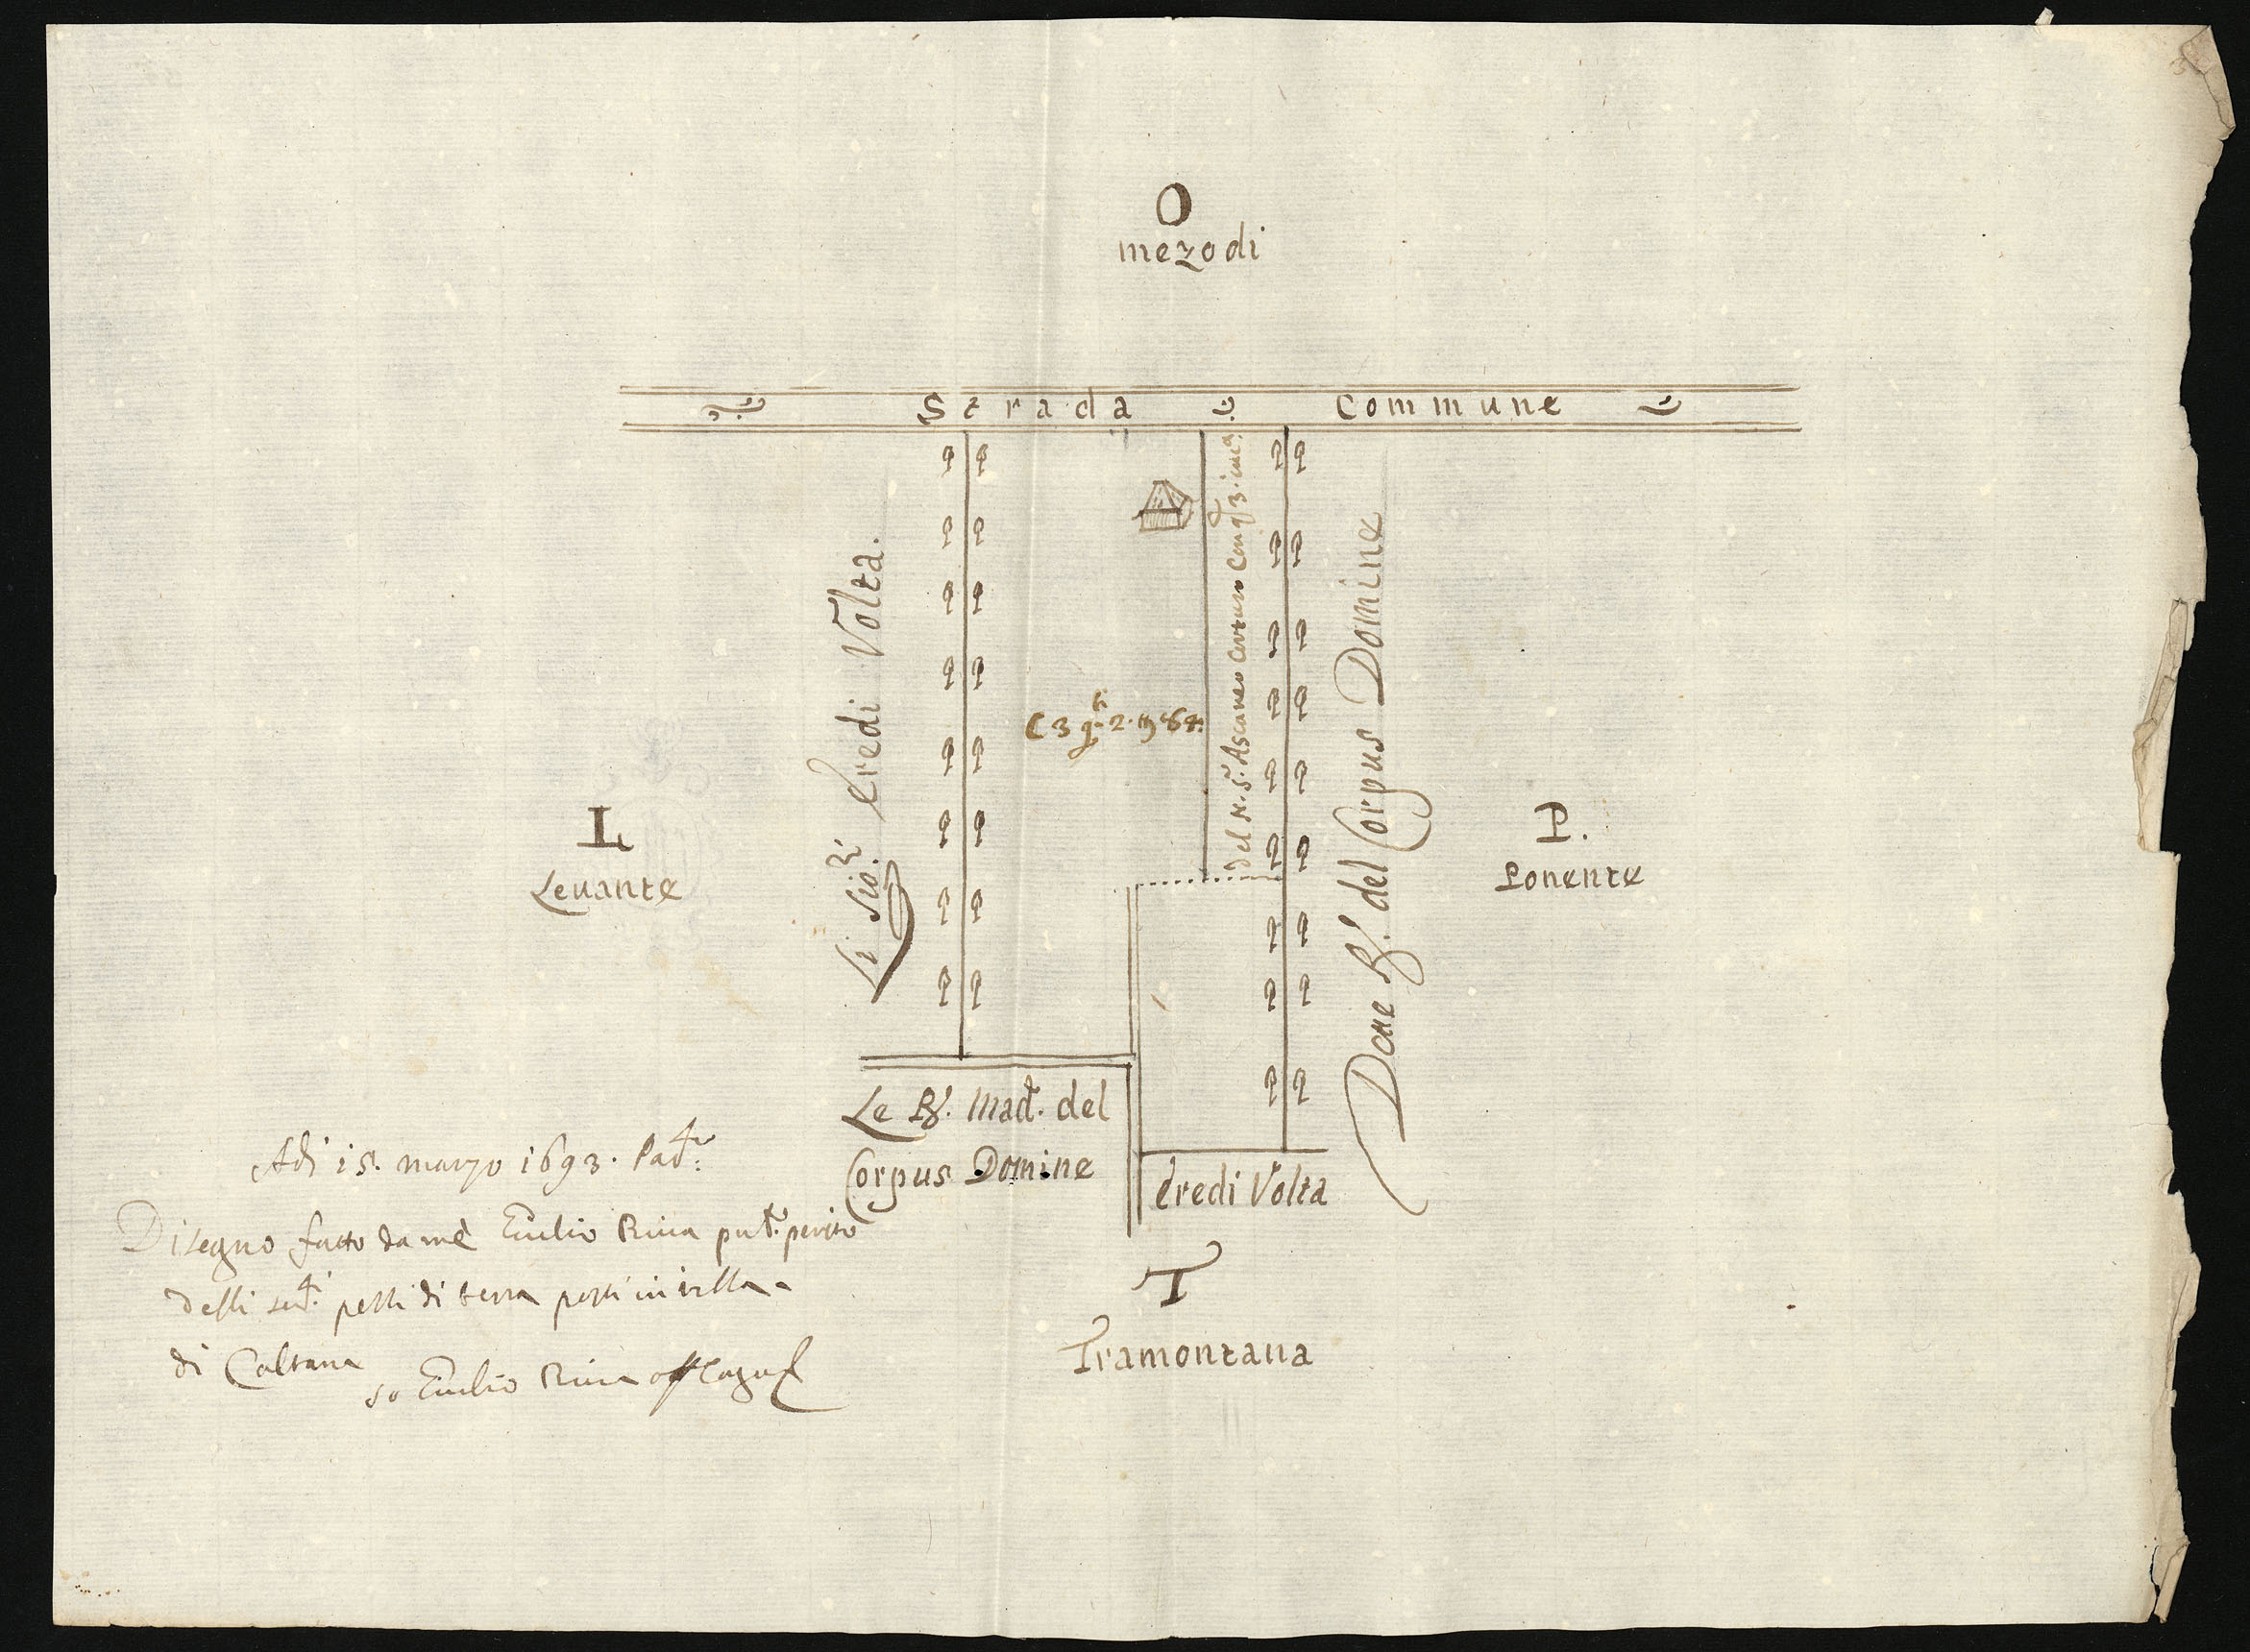 O
mezodi
Strada Commune
Li Sio.ri Eredi Volta.
C 3 q.ri 2.
del N. S.r Ascanio
Done R.e del Corpus Domine
L
Levante
P.
Ponente
Le R.e Mad.e del
Corpus Domine
Eredi Volta
T
Tramontana
Adi 15. marzo 1693. Pad.a:
Disegno fatto da me Emilio Riva pub.o perito
delli pezzi di terra posti in villa
di Caltana
Io Emilio Riva